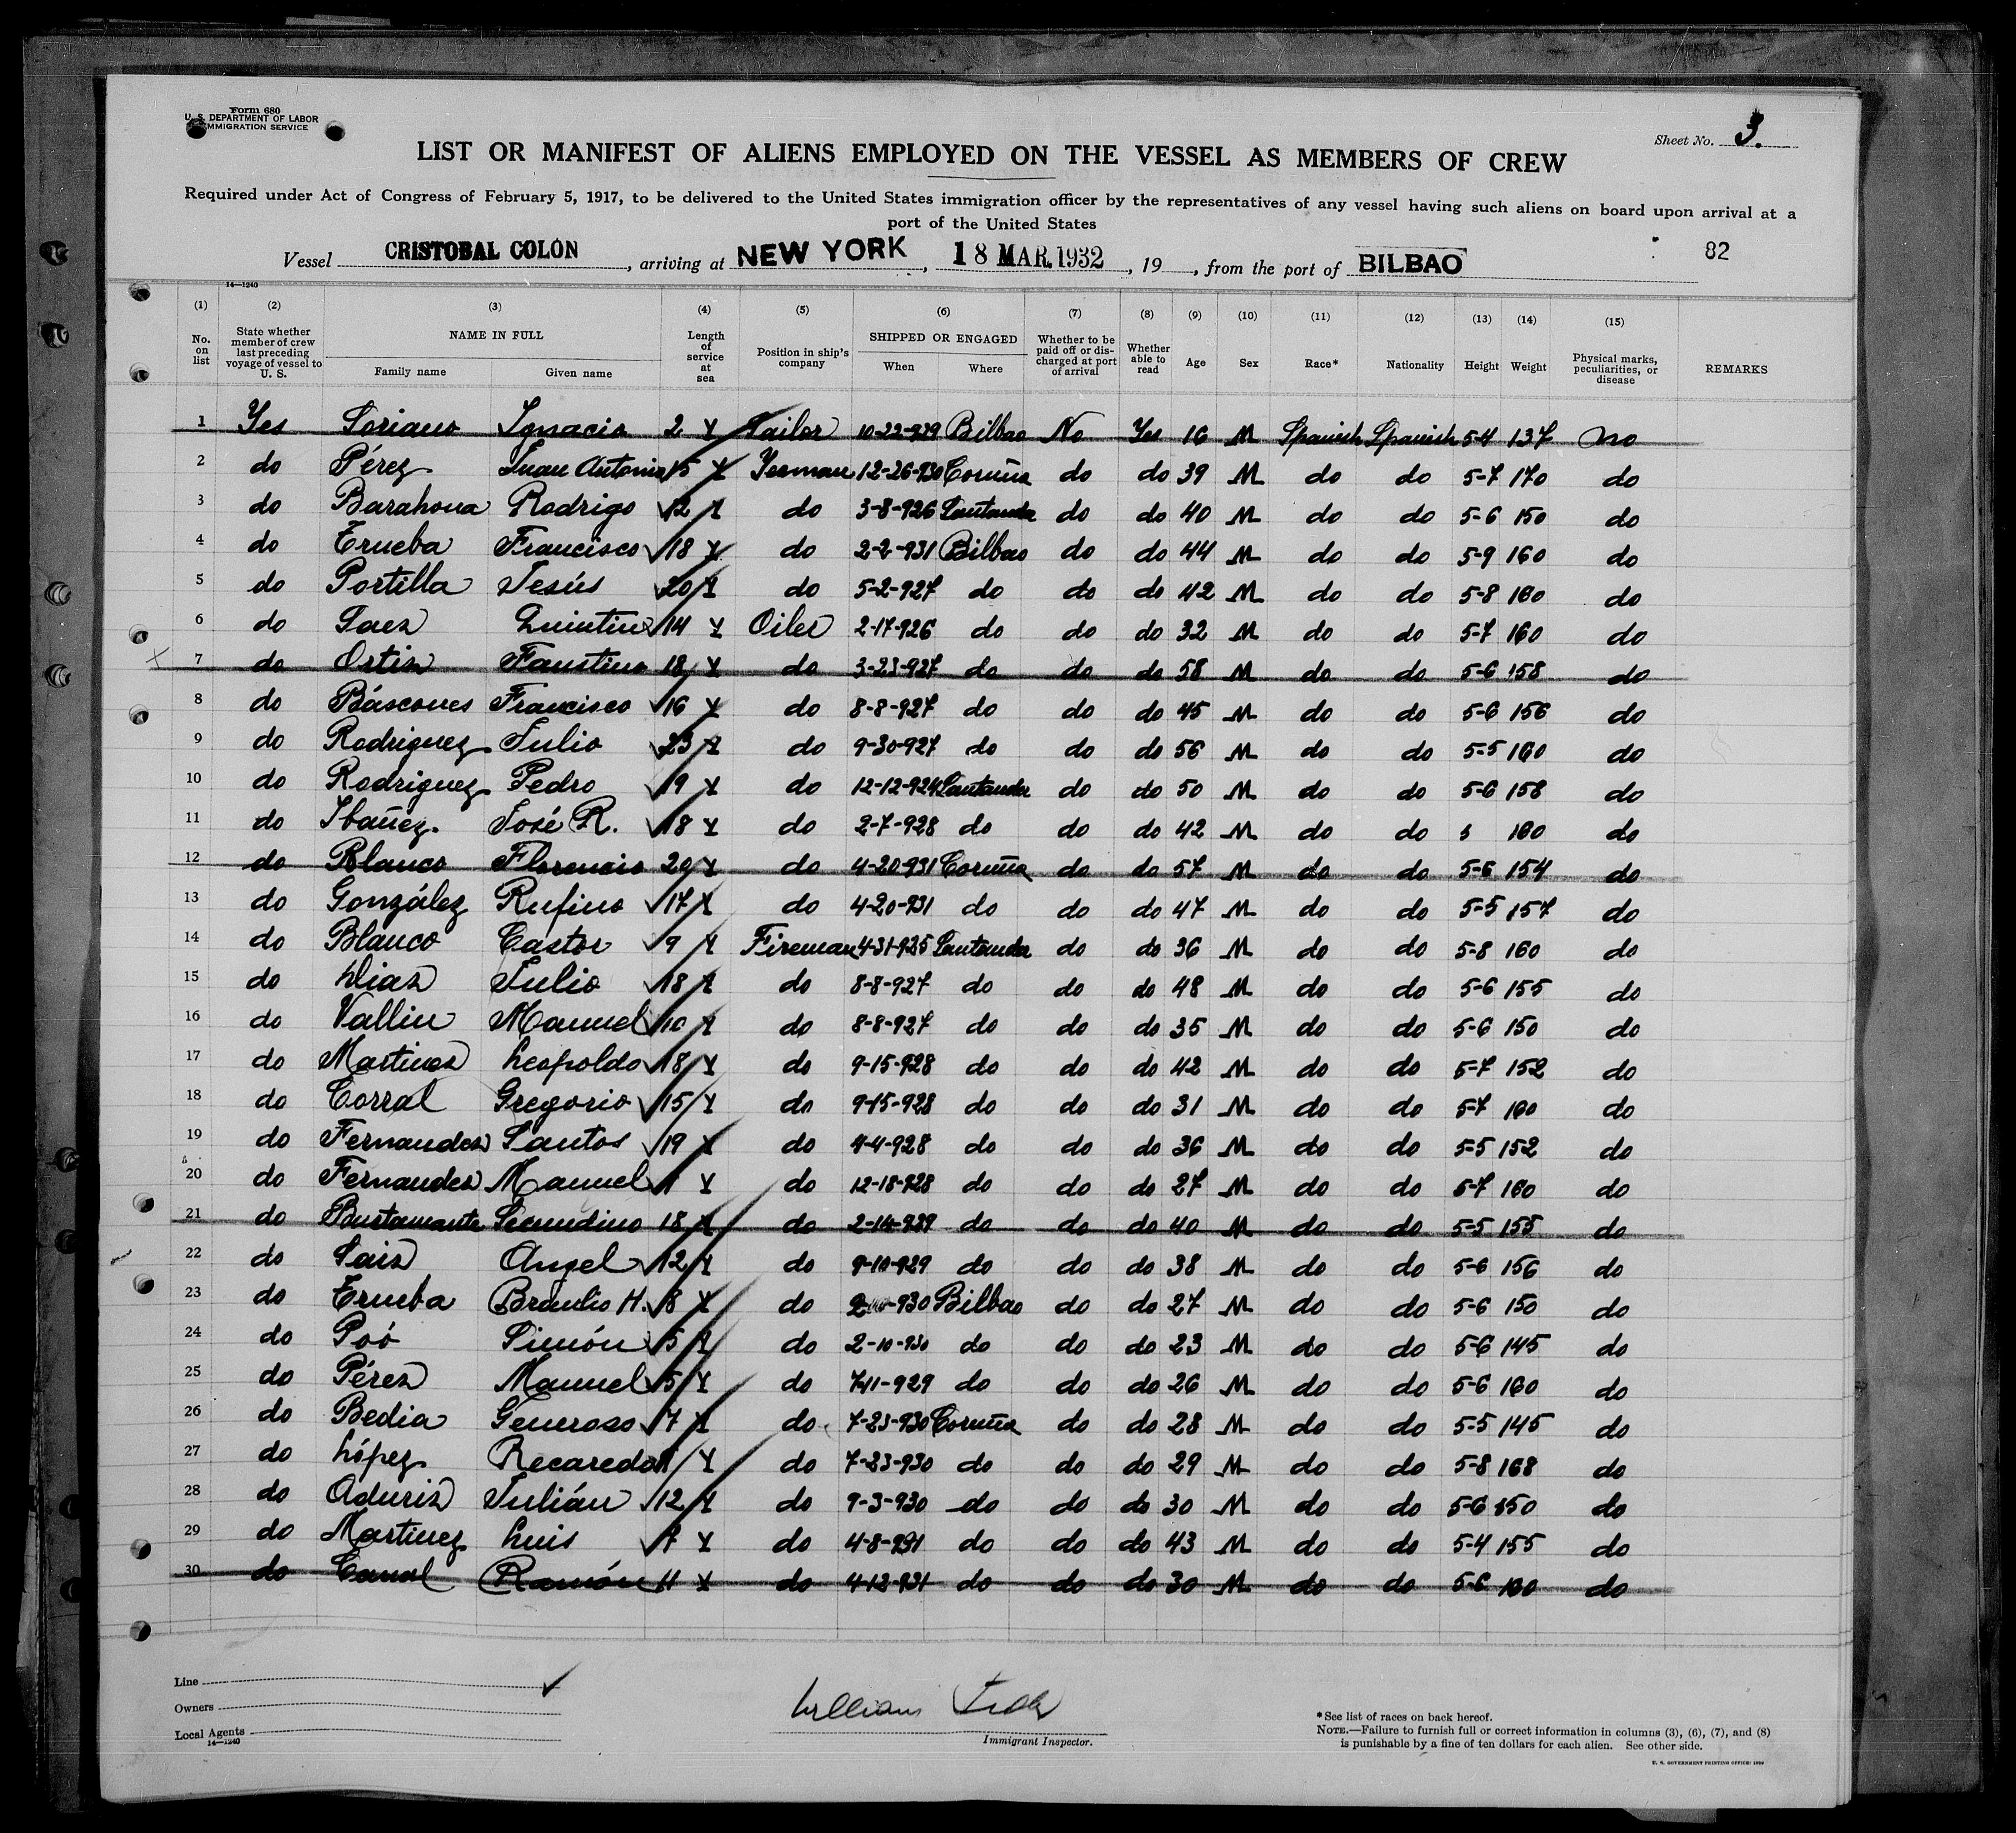 Form 680
U. S. DEPARTMENT OF LABOR
IMMIGRATION SERVICE
Sheet No. 3.
LIST OR MANIFEST OF ALIENS EMPLOYED ON THE VESSEL AS MEMBERS OF CREW
Required under Act of Congress of February 5, 1917, to be delivered to the United States immigration officer by the representatives of any vessel having such aliens on board upon arrival at a
port of the United States
Vessel CRISTOBAL COLON, arriving at NEW YORK, 18 MAR. 1932, 19, from the port of BILBAO 82
14—1240
(1) (2) (3) (4) (5) (6) (7) (8) (9) (10) (11) (12) (13) (14) (15)
No. on list State whether member of crew last preceding voyage of vessel to U. S. NAME IN FULL Family name Given name Length of service at sea Position in ship's company SHIPPED OR ENGAGED When Where Whether to be paid off or discharged at port of arrival Whether able to read Age Sex Race* Nationality Height Weight Physical marks, peculiarities, or disease REMARKS
1 Yes Soriano Ignacio 2 Sailor 10-22-929 Bilbao No Yes 16 M Spanish Spanish 5-4 137 no
2 do Pérez Juan Antonio 15 Yeoman 12-26-930 Coruña do do 39 M do do 5-7 170 do
3 do Barahona Rodrigo 12 do 3-8-926 Santander do do 40 M do do 5-6 150 do
4 do Trueba Francisco 18 do 2-2-931 Bilbao do do 44 M do do 5-9 160 do
5 do Portilla Jesús 20 do 5-2-927 do do do 42 M do do 5-8 160 do
6 do Saez Quintin 14 Oiler 2-17-926 do do do 32 M do do 5-7 160 do
7 do Ortiz Faustino 18 do 3-23-927 do do do 58 M do do 5-6 158 do
8 do Báscones Francisco 16 do 8-8-927 do do do 45 M do do 5-6 156 do
9 do Rodriguez Julio 23 do 9-30-927 do do do 56 M do do 5-5 160 do
10 do Rodriguez Pedro 19 do 12-12-924 Santander do do 50 M do do 5-6 158 do
11 do Ibañez. José R. 18 do 2-7-928 do do do 42 M do do 160 do
12 do Blanco Florencio 20 do 4-20-931 Coruña do do 57 M do do 5-6 154 do
13 do González Rufino 17 do 4-20-931 do do do 47 M do do 5-5 157 do
14 do Blanco Castor 9 Fireman 4-31-925 Santander do do 36 M do do 5-8 160 do
15 do Diaz Julio 18 do 8-8-927 do do do 48 M do do 5-6 155 do
16 do Vallin Manuel 10 do 8-8-927 do do do 35 M do do 5-6 150 do
17 do Martinez Leopoldo 18 do 9-15-928 do do do 42 M do do 5-7 152 do
18 do Corral Gregorio 15 do 9-15-928 do do do 31 M do do 5-7 160 do
19 do Fernandez Santos 19 do 4-4-928 do do do 36 M do do 5-5 152 do
20 do Fernandez Manuel do 12-18-928 do do do 27 M do do 5-7 160 do
21 do Bustamante Secundino 18 do 2-14-929 do do do 40 M do do 5-5 155 do
22 do Saiz Angel 12 do 9-10-929 do do do 38 M do do 5-6 156 do
23 do Trueba Braulio H. 8 do Bilbao do do 27 M do do 5-6 150 do
24 do Poó Simón 5 do 2-10-930 do do do 23 M do do 5-6 145 do
25 do Pérez Manuel 5 do 7-11-929 do do do 26 M do do 5-6 160 do
26 do Bedia Generoso 7 do 7-23-930 Coruña do do 28 M do do 5-5 145 do
27 do López Recaredo do 7-23-930 do do do 29 M do do 5-8 168 do
28 do Aduriz Julián 12 do 9-3-930 do do do 30 M do do 5-6 150 do
29 do Martinez Luis 7 do 4-8-931 do do do 43 M do do 5-4 155 do
30 do Canal Ramón 11 do 4-12-931 do do do 30 M do do 5-6 160 do
Line
Owners
Local Agents
14—1240
William
Immigrant Inspector.
*See list of races on back hereof.
NOTE.—Failure to furnish full or correct information in columns (3), (6), (7), and (8)
is punishable by a fine of ten dollars for each alien. See other side.
U. S. GOVERNMENT PRINTING OFFICE: 1930